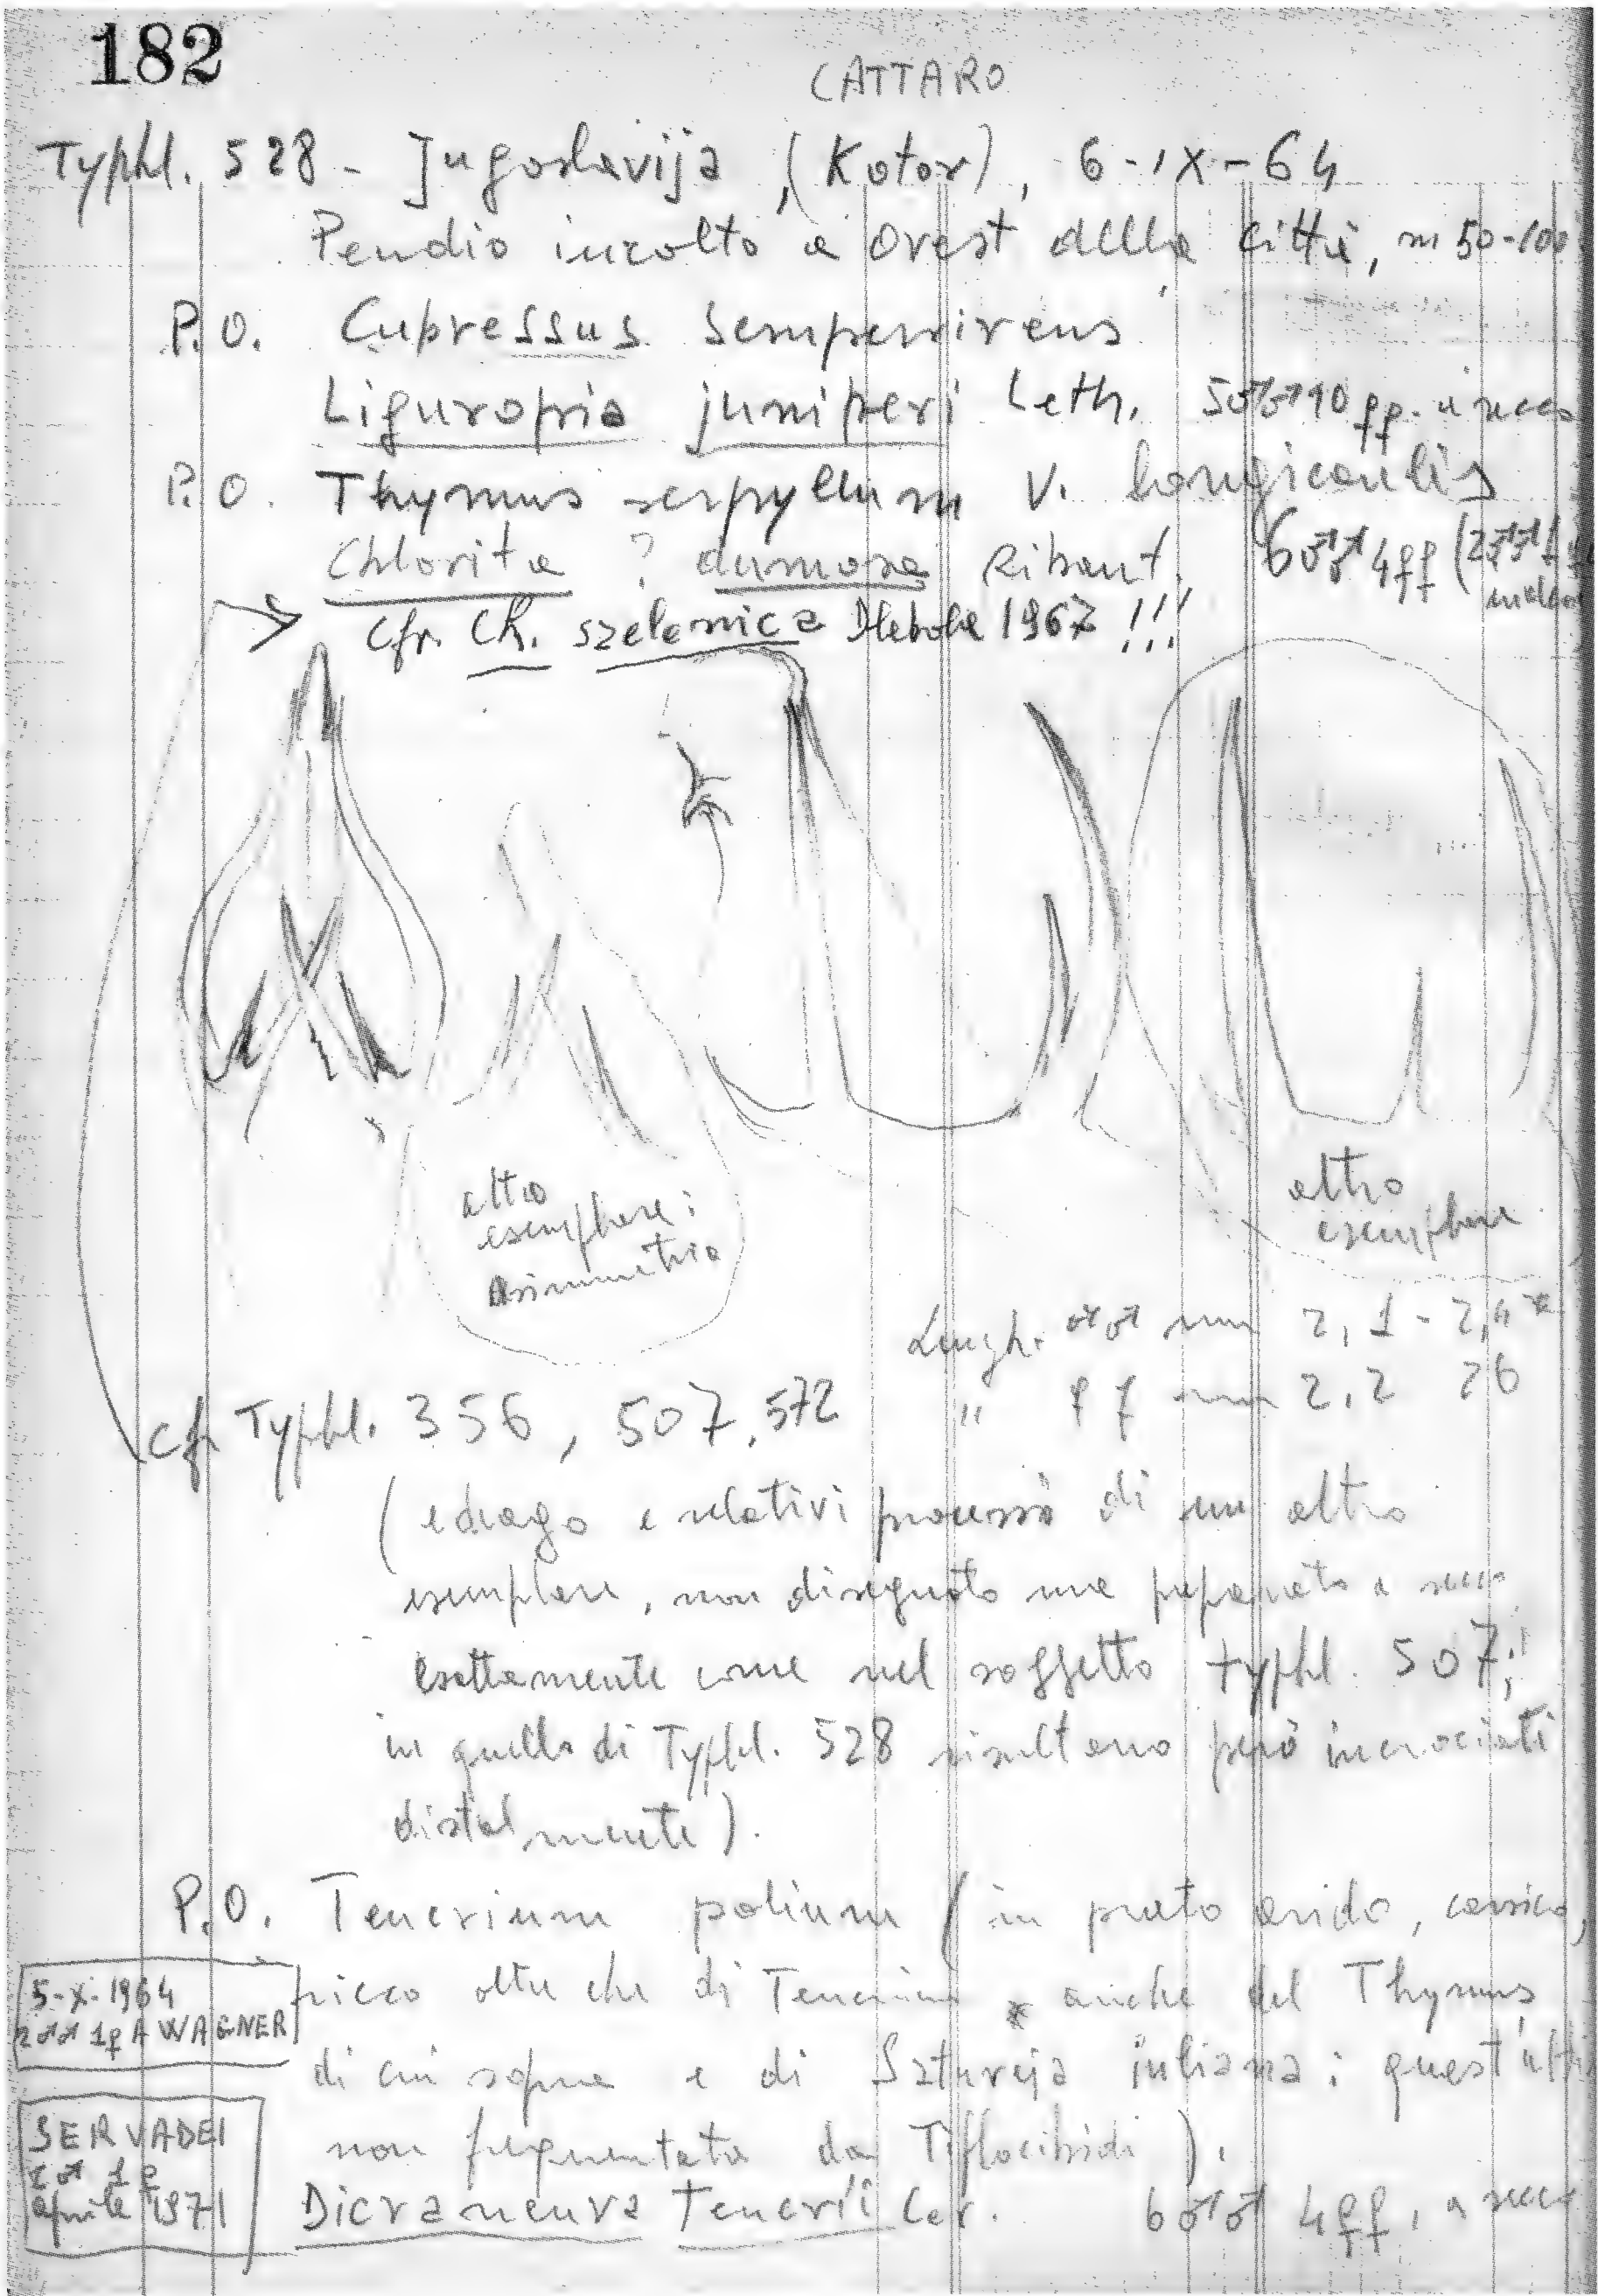 182
CATTARO
Typhl. 528 - Jugoslavija, (Kotor), 6-IX-64
Pendio incolto a Ovest della città, m 50-100
P.O. Cupressus sempervirens
Liguropia juniperi Leth. 5♂♂ 10♀♀. a secco
P.O. Thymus serpyllum v. longicaulis
Chlorita ? dumosa Ribaut. 6♂♂ 4♀♀ (2♂♂ 1
cfr. Ch. szelenica Dlabola 1967 !!!
altro
esemplare:
asimmetria
altro
esemplare
Lungh. ♂♂ mm 2,1 - 2,4
" ♀♀ mm 2,2 26
Cfr Typhl. 356, 507, 572
(edeago e relativi processi di un altro
esemplare, non disegnato ma preparato a secco
esattamente come nel soggetto typhl. 507;
in quello di Typhl. 528 risultano però incrociati
distalmente).
P.O. Teucrium polium (in prato arido, carsico,
ricco oltre che di Teucrium anche del Thymus
di cui sopra e di Satureja juliana: quest'ult.
non frequentata da Tiflocibidi).
Dicraneura Teucrii Cer. 6♂♂ 4♀♀, a secco
5-X-1964
2♂♂ 1♀ A WAGNER
SERVADEI
1♂ 1♀
aprile 1971